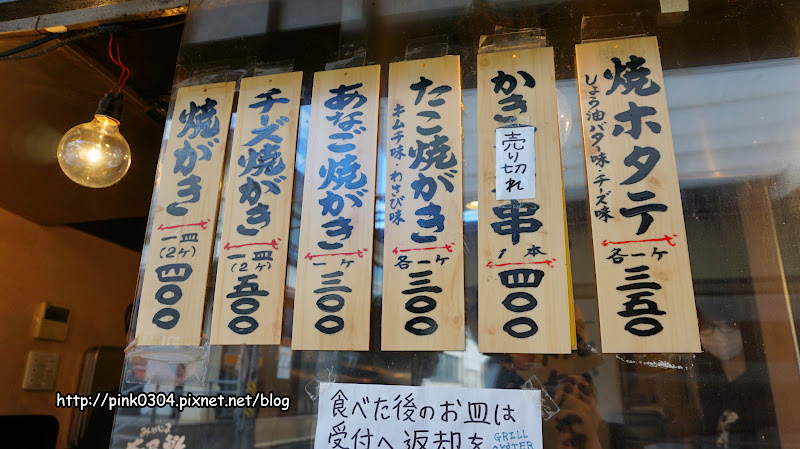 焼がき
一皿
(2ヶ)
四〇〇
チーズ焼がき
一皿
(2ヶ)
五〇〇
あなご焼がき
一ヶ
三〇〇
たこ焼がき
キムチ味・わさび味
各一ヶ
三〇〇
かき
売り切れ
串
1本
四〇〇
焼ホタテ
しょう油バター味・チーズ味
各一ヶ
三五〇
食べた後のお皿は
受付へ返却を
GRILL
OYSTER
http://pink0304.pixnet.net/blog